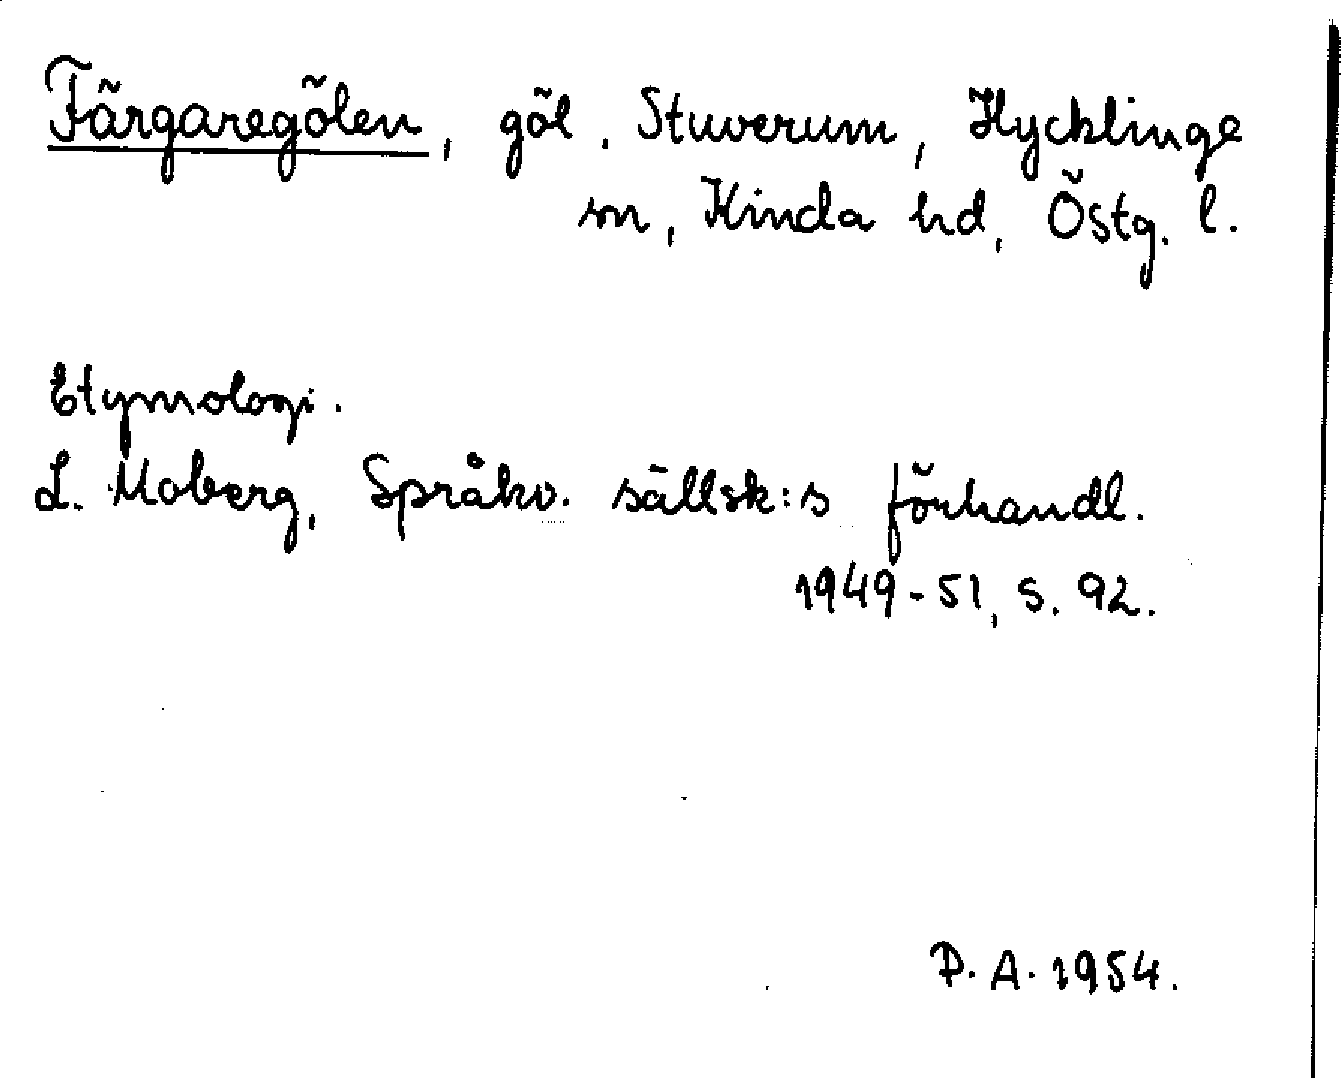 Färgaregölen, göl. Stuverum, Hycklinge
sn, Kinda hd, Östg. l.
Etymologi.
L. Moberg, Språkv. sällsk:s förhandl.
1949-51, s. 92.
P. A. 1954.